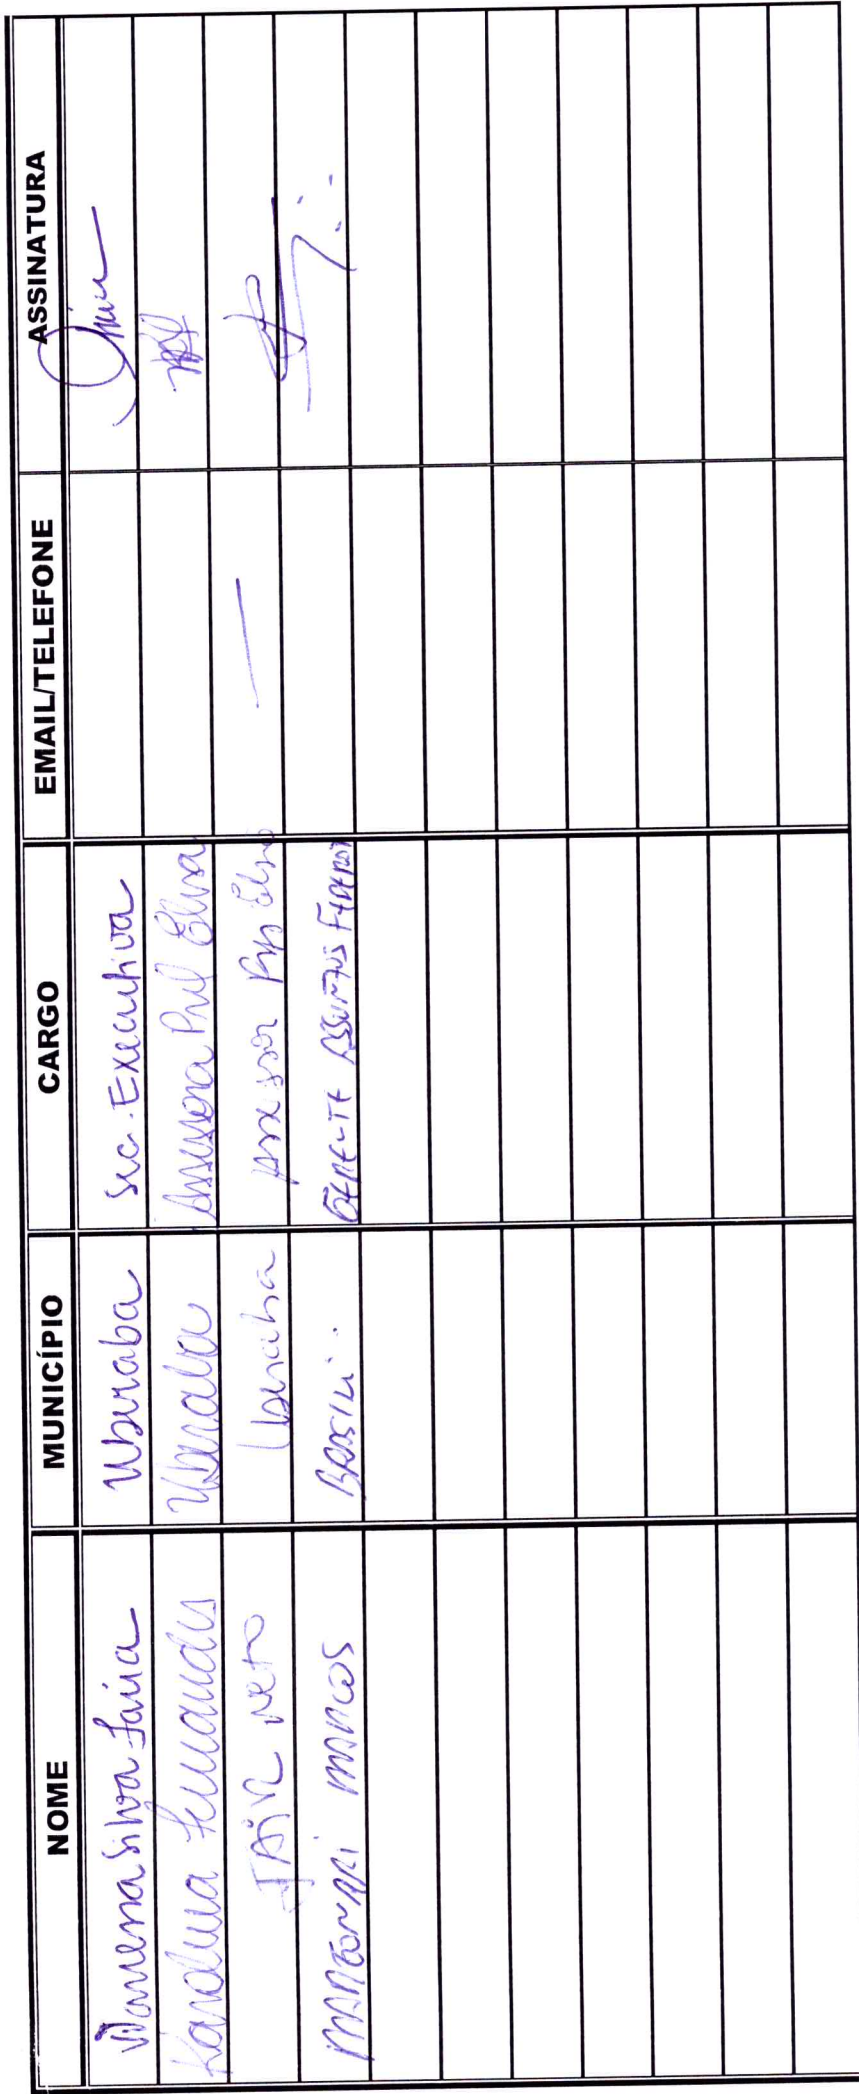 NOME MUNICÍPIO CARGO EMAIL/TELEFONE ASSINATURA
Silva Faria Uberaba Sec. Executiva
Karolina Fernandes Uberaba Assessora Elisa
JAIR NETO Uberaba Assessor —
MARCOS BRASILI.. GERENTE ASSUNTOS